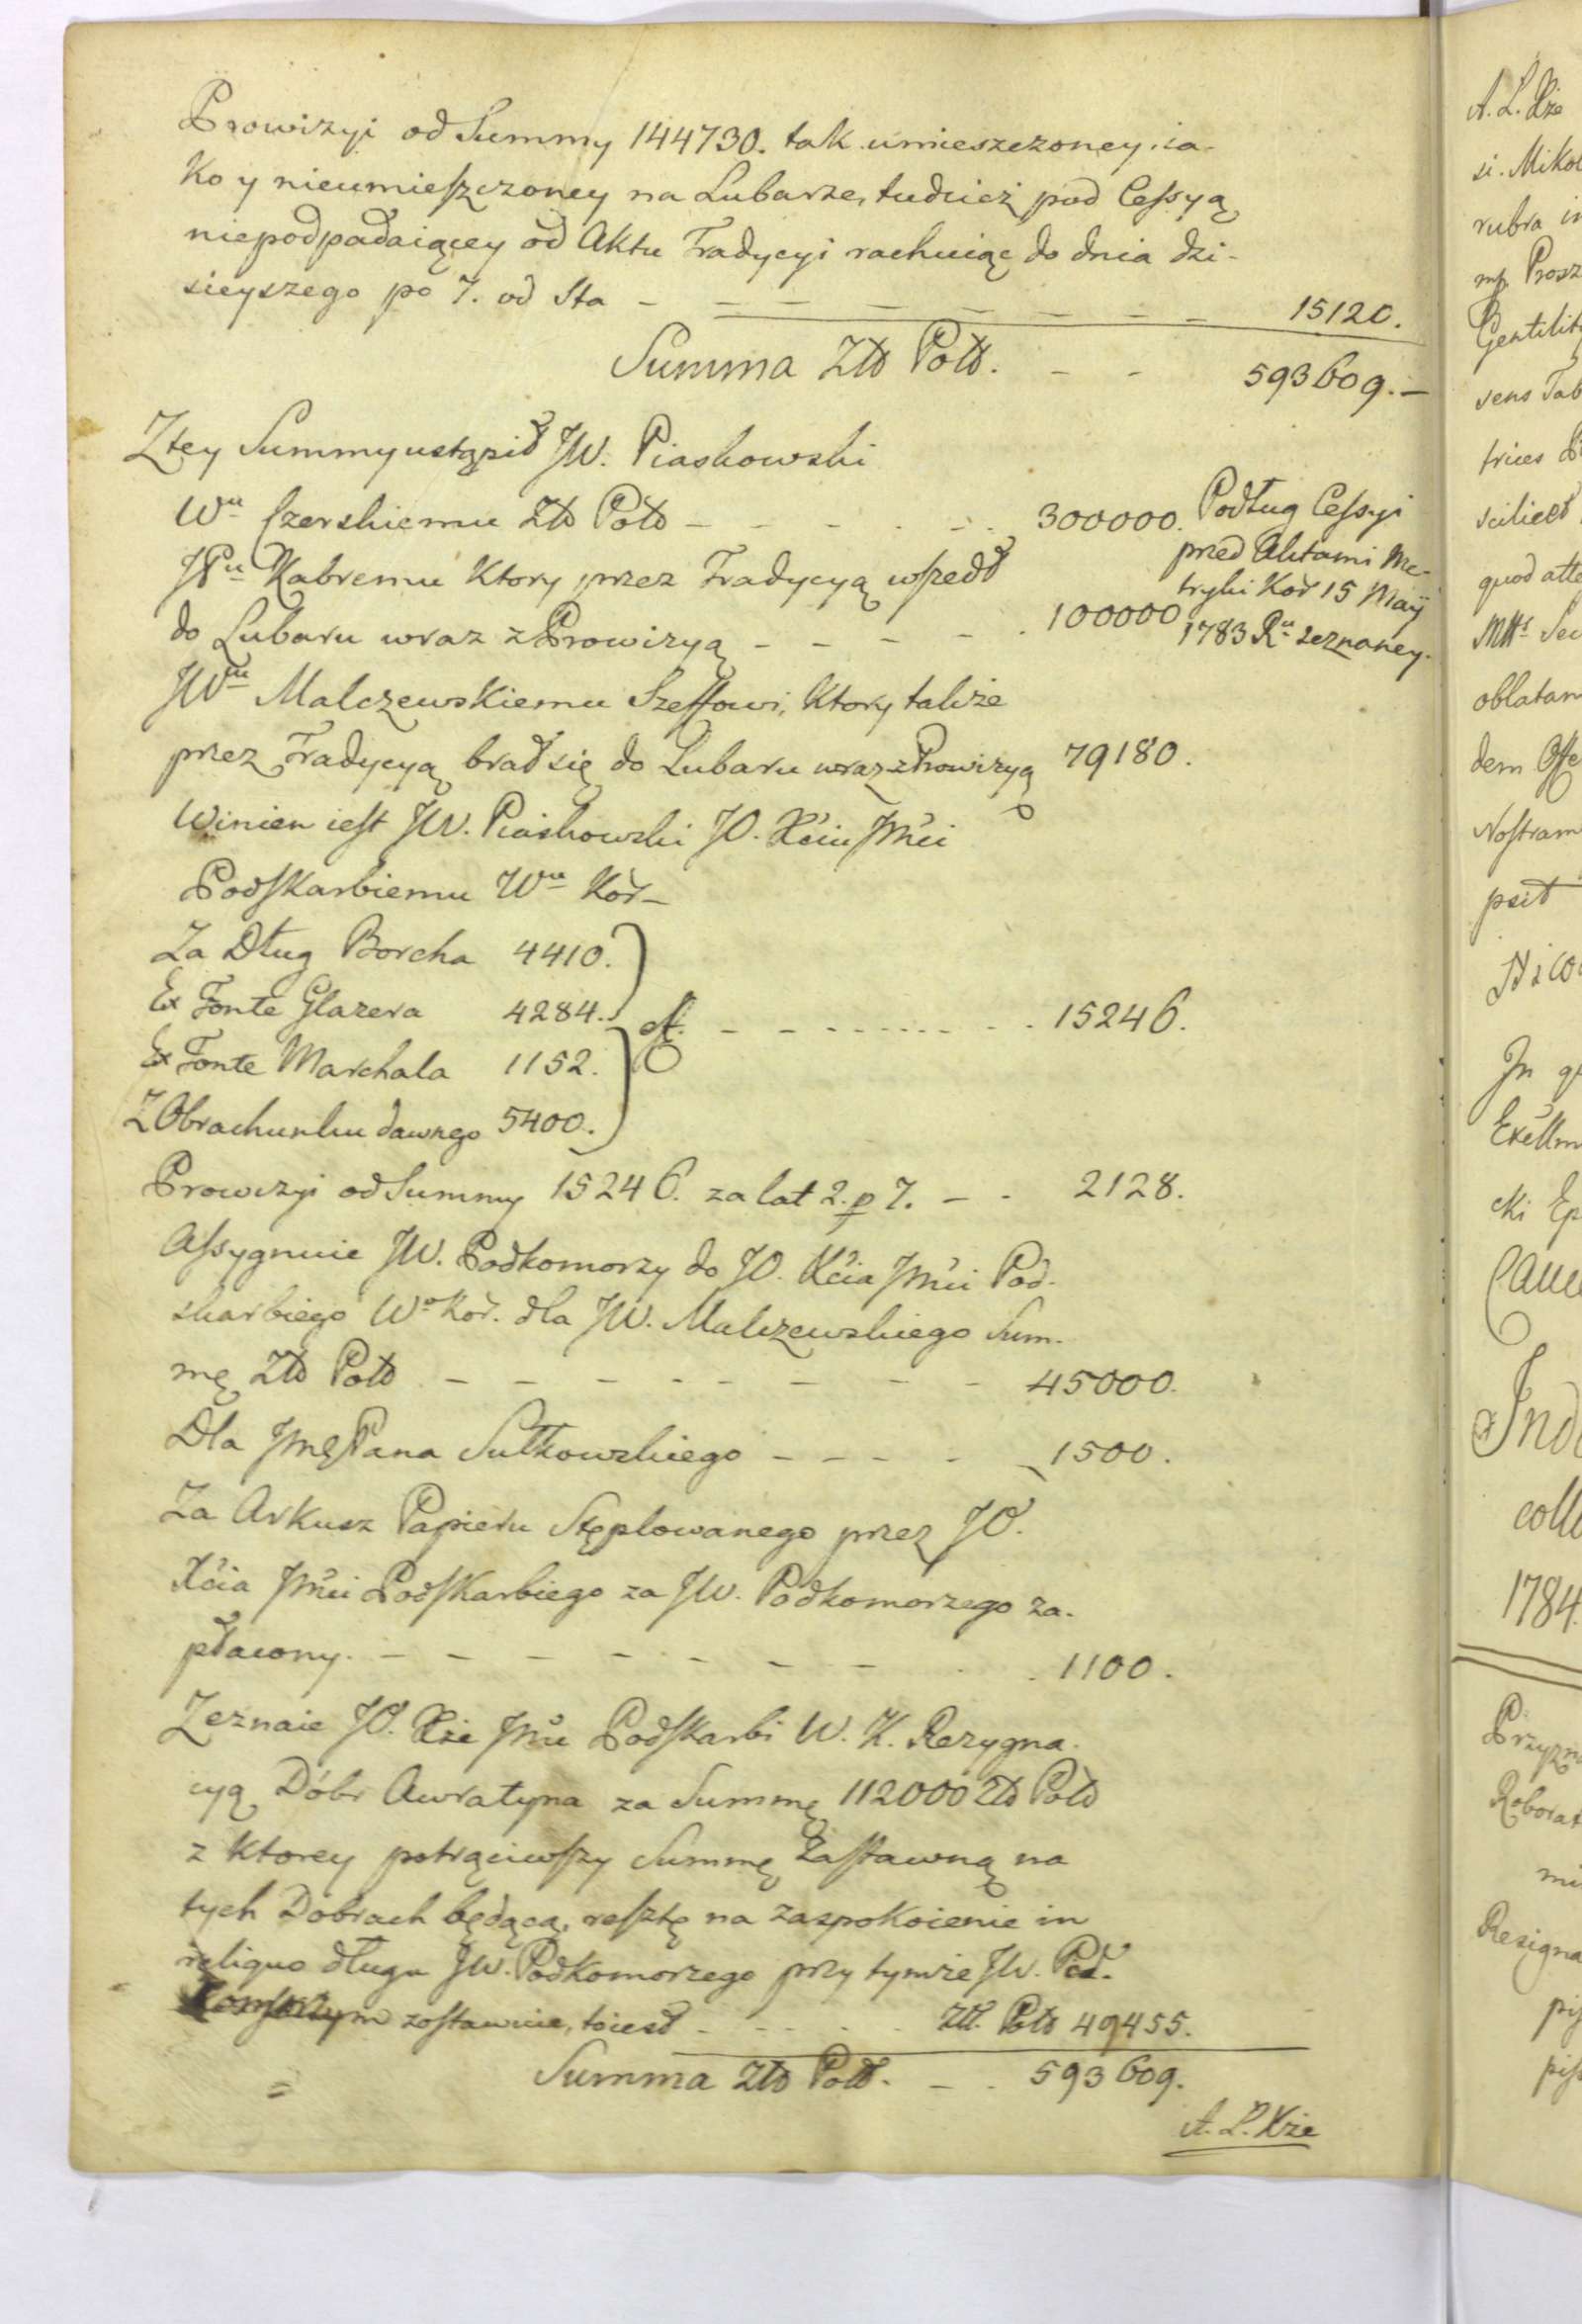 Prowizyi od Summy 144730. tak umieszczoney, ia-
ko y nieumieszczoney na Lubarze, tudzież pod Cessyą
niepodpadaiącey od Aktu Tradycyi rachuiąc do dnia dzi-
sieyszego po 7. od Sta - - - - - - - 15120.
Summa Złł Poll. - - 593609.-
Z tey Summy ustąpił JW. Piaskowski
Wu Czerskiemu Złł Poll - - - - - 300000.
Podług Cessyi
przed Aktami Me-
tryki Kor 15 Maij
1783 Ru zeznaney.
JPu Kabremu ktory przez Tradycyą wszedł
do Lubaru wraz z Prowizyą - - - - 100000
JWu Malczewskiemu Szeffowi, ktory także
przez Tradycyą brał się do Lubaru wraz z Prowizyą 79180.
Winien iest JW. Piaskowski JO. Xciu Jmci
Podskarbiemu Wu Kor-
Za Dług Borcha 4410.
Ex Fonte Glazera 4284.
fl. - - - - - - 15246.
Ex Fonte Marchala 1152.
Z Obrachunku dawnego 5400.
Prowizyi od Summy 15246. za lat 2. p 7. - - 2128.
Assygnuie JW. Podkomorzy do JO. Xcia Jmci Pod-
skarbiego Wo Kor. dla JW. Malczewskiego Sum-
mę Złł Poll - - - - - - - - 45000.
Dla Jmę Pana Sułkowskiego - - - - 1500.
Za Arkusz Papieru Stęplowanego przez JO.
Xcia Jmci Podskarbiego za JW. Podkomorzego za-
płacony. - - - - - - - - 1100.
Zeznaie JO. Xże Jmć Podskarbi W. K. Rezygna-
cyą Dóbr Awratyna za Summę 112000 Złł Poll
z ktorey potrąciwszy Summę Zastawną na
tych Dobrach będącą, resztę na zaspokoienie in
reliquo długu JW. Podkomorzego przy tymże JW. Pod-
komorzym zostawuie, toiest - - - - Złł. Poll 49455.
Summa Złł Poll. - - 593609.
A. P. Xże